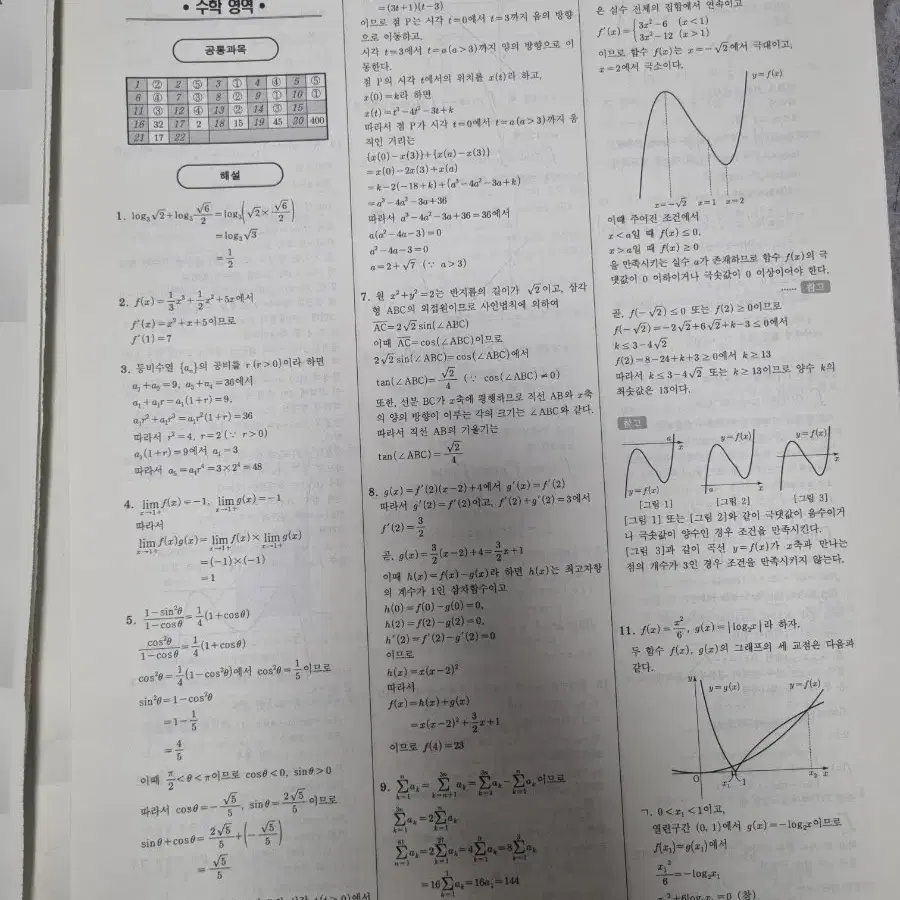 • 수학 영역 •
공통과목
1 ② 2 ⑤ 3 ① 4 ④ 5 ⑤
6 ④ 7 ③ 8 ② 9 ① 10 ①
11 ③ 12 ④ 13 ② 14 ③ 15
16 32 17 2 18 15 19 45 20 400
21 17 22
해설
1. log₃√2+log₃ √6/2 = log₃(√2× √6/2)
=log₃√3
= 1/2
2. f(x)= 1/3 x³+ 1/2 x²+5x에서
f′(x)=x²+x+5이므로
f′(1)=7
3. 등비수열 {aₙ}의 공비를 r (r>0)이라 하면
a₁+a₂=9, a₃+a₄=36에서
a₁+a₁r=a₁(1+r)=9,
a₁r²+a₁r³=a₁r²(1+r)=36
따라서 r²=4, r=2 (∵ r>0)
a₁(1+r)=9에서 a₁=3
따라서 a₅=a₁r⁴=3×2⁴=48
4. lim x→1+ f(x)=-1, lim x→1+ g(x)=-1
따라서
lim x→1+ f(x)g(x)= lim x→1+ f(x)× lim x→1+ g(x)
=(-1)×(-1)
=1
5. (1-sin²θ)/(1-cosθ) = 1/4 (1+cosθ)
cos²θ/(1-cosθ) = 1/4 (1+cosθ)
cos²θ= 1/4 (1-cos²θ)에서 cos²θ= 1/5 이므로
sin²θ=1-cos²θ
=1- 1/5
= 4/5
이때 π/2 <θ<π이므로 cosθ<0, sinθ>0
따라서 cosθ=- √5/5, sinθ= 2√5/5 이므로
sinθ+cosθ= 2√5/5 +(- √5/5)
= √5/5
=(3t+1)(t-3)
이므로 점 P는 시각 t=0에서 t=3까지 음의 방향
으로 이동하고,
시각 t=3에서 t=a (a>3)까지 양의 방향으로 이
동한다.
점 P의 시각 t에서의 위치를 x(t)라 하고,
x(0)=k라 하면
x(t)=t³-4t²-3t+k
따라서 점 P가 시각 t=0에서 t=a (a>3)까지 움
직인 거리는
{x(0)-x(3)}+{x(a)-x(3)}
=x(0)-2x(3)+x(a)
=k-2(-18+k)+(a³-4a²-3a+k)
=a³-4a²-3a+36
따라서 a³-4a²-3a+36=36에서
a(a²-4a-3)=0
a²-4a-3=0
a=2+√7 (∵ a>3)
7. 원 x²+y²=2는 반지름의 길이가 √2이고, 삼각
형 ABC의 외접원이므로 사인법칙에 의하여
AC=2√2 sin(∠ABC)
이때 AC=cos(∠ABC)이므로
2√2 sin(∠ABC)=cos(∠ABC)에서
tan(∠ABC)= √2/4 (∵ cos(∠ABC)≠0)
또한, 선분 BC가 x축에 평행하므로 직선 AB와 x축
의 양의 방향이 이루는 각의 크기는 ∠ABC와 같다.
따라서 직선 AB의 기울기는
tan(∠ABC)= √2/4
8. g(x)=f′(2)(x-2)+4에서 g′(x)=f′(2)
따라서 g′(2)=f′(2)이고, f′(2)+g′(2)=3에서
f′(2)= 3/2
곧, g(x)= 3/2 (x-2)+4= 3/2 x+1
이때 h(x)=f(x)-g(x)라 하면 h(x)는 최고차항
의 계수가 1인 삼차함수이고
h(0)=f(0)-g(0)=0,
h(2)=f(2)-g(2)=0,
h′(2)=f′(2)-g′(2)=0
이므로
h(x)=x(x-2)²
따라서
f(x)=h(x)+g(x)
=x(x-2)²+ 3/2 x+1
이므로 f(4)=23
=16 Σ aₖ=16a₁=144
은 실수 전체의 집합에서 연속이고
f′(x)= { 3x²-6 (x<1)
3x²-12 (x>1)
이므로 함수 f(x)는 x=-√2에서 극대이고,
x=2에서 극소이다.
y=f(x)
x=-√2 x=1 x=2
이때 주어진 조건에서
x<a일 때 f(x)≤0,
x>a일 때 f(x)≥0
을 만족시키는 실수 a가 존재하므로 함수 f(x)의 극
댓값이 0 이하이거나 극솟값이 0 이상이어야 한다.
…… 참고
곧, f(-√2)≤0 또는 f(2)≥0이므로
f(-√2)=-2√2+6√2+k-3≤0에서
k≤3-4√2
f(2)=8-24+k+3≥0에서 k≥13
따라서 k≤3-4√2 또는 k≥13이므로 양수 k의
최솟값은 13이다.
참고
a x y=f(x) y=f(x)
y=f(x) a x x
[그림 1] [그림 2] [그림 3]
[그림 1] 또는 [그림 2]와 같이 극댓값이 음수이거
나 극솟값이 양수인 경우 조건을 만족시킨다.
[그림 3]과 같이 곡선 y=f(x)가 x축과 만나는
점의 개수가 3인 경우 조건을 만족시키지 않는다.
11. f(x)= x²/6, g(x)=|log₂x|라 하자.
두 함수 f(x), g(x)의 그래프의 세 교점은 다음과
같다.
y y=g(x) y=f(x)
O x₁ 1 x₃ x
ㄱ. 0<x₁<1이고,
열린구간 (0, 1)에서 g(x)=-log₂x이므로
f(x₁)=g(x₁)에서
x₁²/6 =-log₂x₁